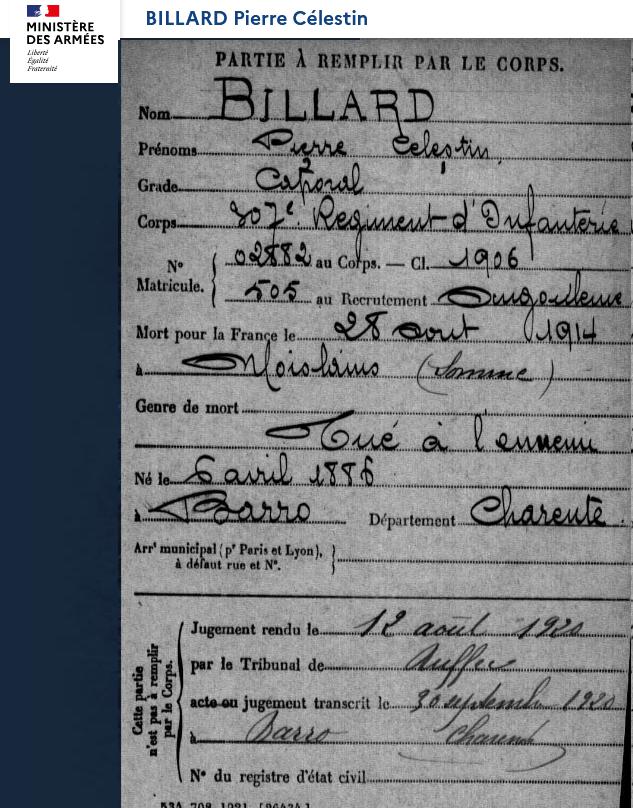 MINISTÈRE
DES ARMÉES
Liberté
Égalité
Fraternité
BILLARD Pierre Célestin
PARTIE À REMPLIR PAR LE CORPS.
Nom BILLARD
Prénoms Pierre Célestin
Grade Caporal
Corps 307e Régiment d'Infanterie
N° Matricule. { 02882 au Corps. — Cl. 1906
505 au Recrutement Angoulême
Mort pour la France le 28 aout 1914
à Moislains (Somme)
Genre de mort
Tué à l'ennemi
Né le 6 avril 1886
à Barro Département Charente.
Arrt municipal (pr Paris et Lyon), }
à défaut rue et N°.
Cette partie n'est pas à remplir par le Corps.
Jugement rendu le 12 août 1920
par le Tribunal de Ruffec
acte ou jugement transcrit le 30 septembre 1920
à Barro Charente
N° du registre d'état civil
534 708 1921 [26434]